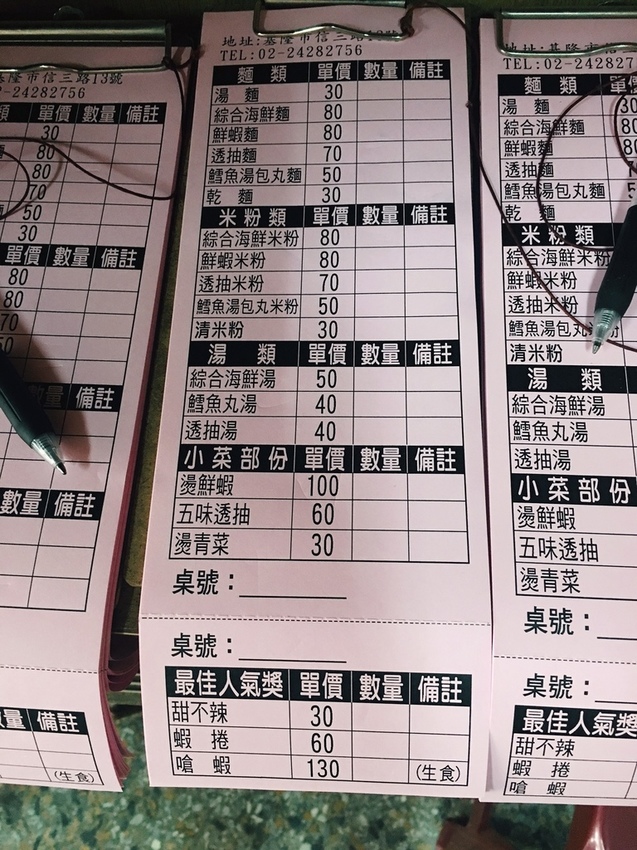 地址:基隆市信三路13號
TEL:02-24282756
麵 類 單價 數量 備註
湯 麵 30
綜合海鮮麵 80
鮮蝦麵 80
透抽麵 70
鱈魚湯包丸麵 50
乾 麵 30
米粉類 單價 數量 備註
綜合海鮮米粉 80
鮮蝦米粉 80
透抽米粉 70
鱈魚湯包丸米粉 50
清米粉 30
湯 類 單價 數量 備註
綜合海鮮湯 50
鱈魚丸湯 40
透抽湯 40
小菜部份 單價 數量 備註
燙鮮蝦 100
五味透抽 60
燙青菜 30
桌號：
桌號：
最佳人氣獎 單價 數量 備註
甜不辣 30
蝦 捲 60
嗆 蝦 130 (生食)
基隆市信三路13號
2-24282756
類 單價 數量 備註
30
80
80
70
50
30
單價 數量 備註
80
80
70
50
數量 備註
數量 備註
數量 備註
(生食)
地址:基隆市信
TEL:02-242827
麵 類 單
湯 麵 30
綜合海鮮麵 80
鮮蝦麵 80
透抽麵
鱈魚湯包丸麵
乾 麵
米粉類
綜合海鮮米粉
鮮蝦米粉
透抽米粉
鱈魚湯包丸
清米粉
湯 類
綜合海鮮湯
鱈魚丸湯
透抽湯
小菜部份
燙鮮蝦
五味透抽
燙青菜
桌號：
桌號：
最佳人氣獎
甜不辣
蝦 捲
嗆 蝦